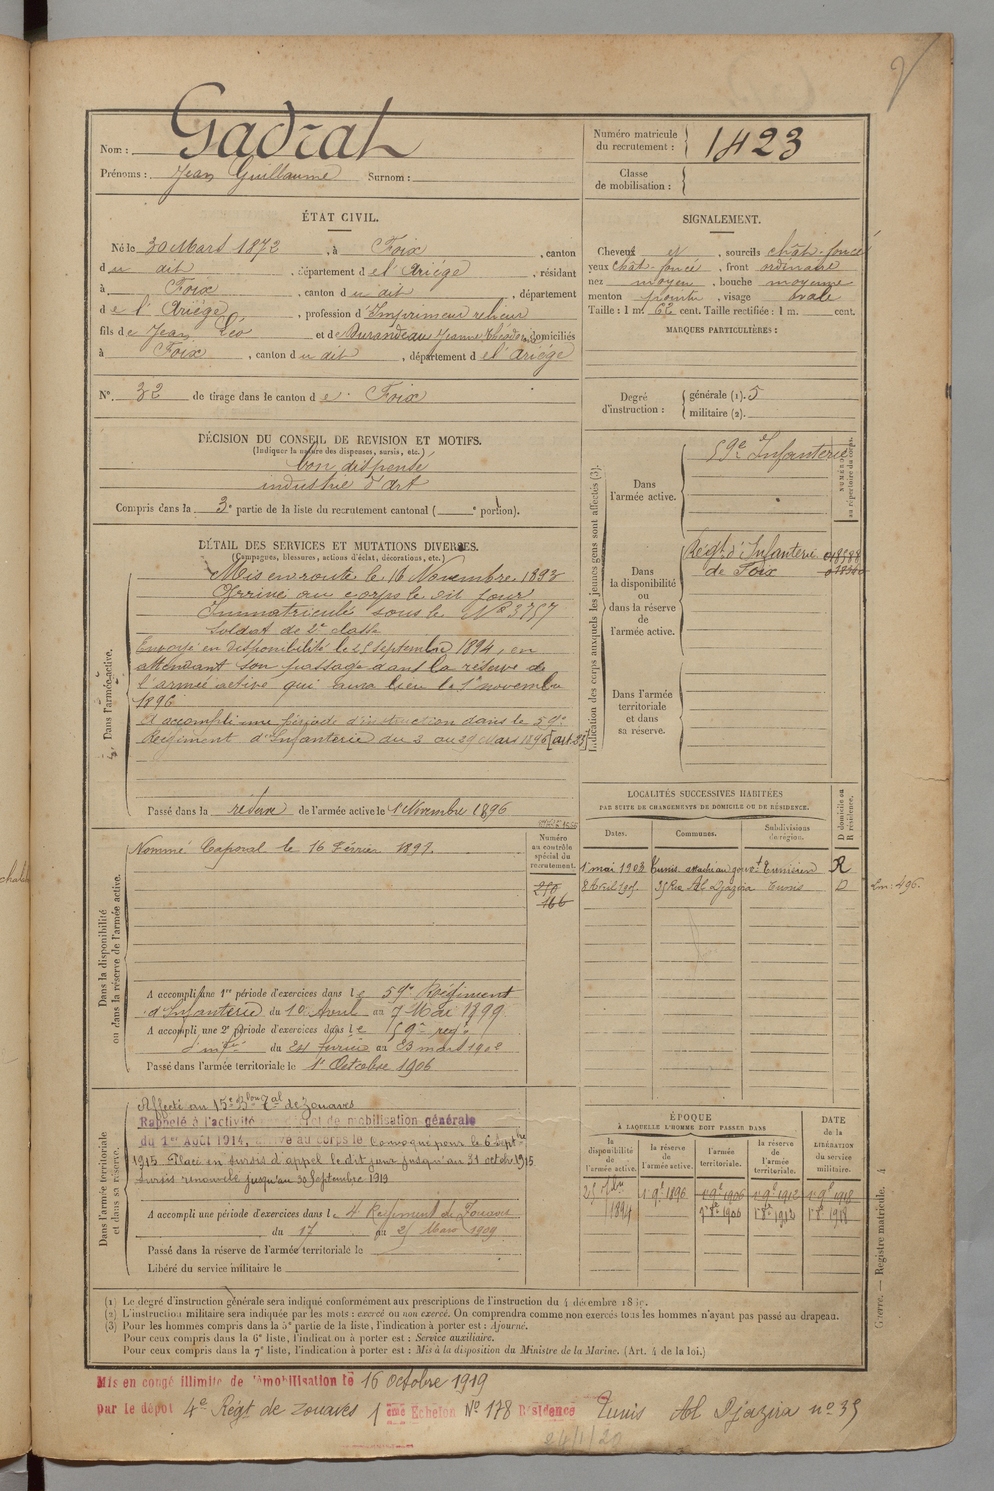 Nom : Gadrat
Prénoms : Jean Guillaume Surnom :
Numéro matricule du recrutement : 1423
Classe de mobilisation :
ÉTAT CIVIL.
Né le 30 Mars 1872, à Foix, canton
du dit, département de l'Ariége, résidant
à Foix, canton du dit, département
de l'Ariége, profession d'Imprimeur relieur
fils de Jean Léo et de Durandeau Jeanne domiciliés
à Foix, canton du dit, département de l'Ariége
N° 32 de tirage dans le canton de Foix
DÉCISION DU CONSEIL DE REVISION ET MOTIFS.
(Indiquer la nature des dispenses, sursis, etc.)
bon dispensé
industrie d'art
Compris dans la 3e partie de la liste du recrutement cantonal ( e portion).
SIGNALEMENT.
Cheveux et, sourcils chât-foncé
yeux chât-foncé, front ordinaire
nez moyen, bouche moyenne
menton pointu, visage ovale
Taille : 1 m. 62 cent. Taille rectifiée : 1 m. cent.
MARQUES PARTICULIÈRES :
Degré d'instruction :
générale (1). 5
militaire (2).
DÉTAIL DES SERVICES ET MUTATIONS DIVERSES.
(Campagnes, blessures, actions d'éclat, décorations, etc.)
Dans l'armée active.
Mis en route le 16 Novembre 1893
Arrivé au corps le dit jour
Immatriculé sous le N° 3757
Soldat de 2e classe
Envoyé en disponibilité le 25 septembre 1894, en
attendant son passage dans la réserve de
l'armée active qui aura lieu le 1er novembre
1896
A accompli une période d'instruction dans le 59e
Régiment d'Infanterie du 3 au 29 Mars 1896 [art. 23]
Passé dans la réserve de l'armée active le 1 Novembre 1896
Indication des corps auxquels les jeunes gens sont affectés (3).
NUMÉRO au répertoire du corps.
Dans l'armée active.
59e Infanterie
Dans la disponibilité ou dans la réserve de l'armée active.
Régt d'Infanterie
de Foix
Dans l'armée territoriale et dans sa réserve.
LOCALITÉS SUCCESSIVES HABITÉES
PAR SUITE DE CHANGEMENTS DE DOMICILE OU DE RÉSIDENCE.
Dates. Communes. Subdivisions de région. D domicile ou R résidence.
1er mai 1903 Tunis attaché au gouvt Tunisien R
8 Avril 1905 35 Rue Al Djazira Tunis D
Dans la disponibilité ou dans la réserve de l'armée active.
Numéro au contrôle spécial du recrutement.
166
Nommé Caporal le 16 Février 1897.
A accompli une 1re période d'exercices dans le 59e Régiment
d'Infanterie du 10 Avril au 7 Mai 1899
A accompli une 2e période d'exercices dans le 59e régt
d'infie du 24 Février au 23 mars 1902
Passé dans l'armée territoriale le 1er Octobre 1906
Dans l'armée territoriale et dans sa réserve.
Affecté au 15e Bon Tal de Zouaves
Rappelé à l'activité de mobilisation générale
du 1er Août 1914, arrivé au corps le Convoqué pour le 6 Septbre
1915 Placé en sursis d'appel le dit jour jusqu'au 31 octobre 1915
Sursis renouvelé jusqu'au 30 Septembre 1919
A accompli une période d'exercices dans le 4e Régiment de Zouaves
du 17 au 25 Mars 1909
Passé dans la réserve de l'armée territoriale le
Libéré du service militaire le
ÉPOQUE
À LAQUELLE L'HOMME DOIT PASSER DANS
la disponibilité de l'armée active. la réserve de l'armée active. l'armée territoriale. la réserve de l'armée territoriale.
DATE de la LIBÉRATION du service militaire.
25 7bre 1894 1er 9e 1896 1er 9e 1906 1er 9e 1912 1er 9e 1918
1er 8e 1906 1er 8e 1912 1er 8e 1918
(1) Le degré d'instruction générale sera indiqué conformément aux prescriptions de l'instruction du 4 décembre 1889.
(2) L'instruction militaire sera indiquée par les mots : exercé ou non exercé. On comprendra comme non exercés tous les hommes n'ayant pas passé au drapeau.
(3) Pour les hommes compris dans la 5e partie de la liste, l'indication à porter est : Ajourné.
Pour ceux compris dans la 6e liste, l'indication à porter est : Service auxiliaire.
Pour ceux compris dans la 7e liste, l'indication à porter est : Mis à la disposition du Ministre de la Marine. (Art. 4 de la loi.)
Guerre. — Registre matricule. 4
Mis en congé illimité de démobilisation le 16 octobre 1919
par le dépôt 4e Régt de Zouaves 1 ème Echelon N° 178 Résidence Tunis Al Djazira n° 35
24/1/20